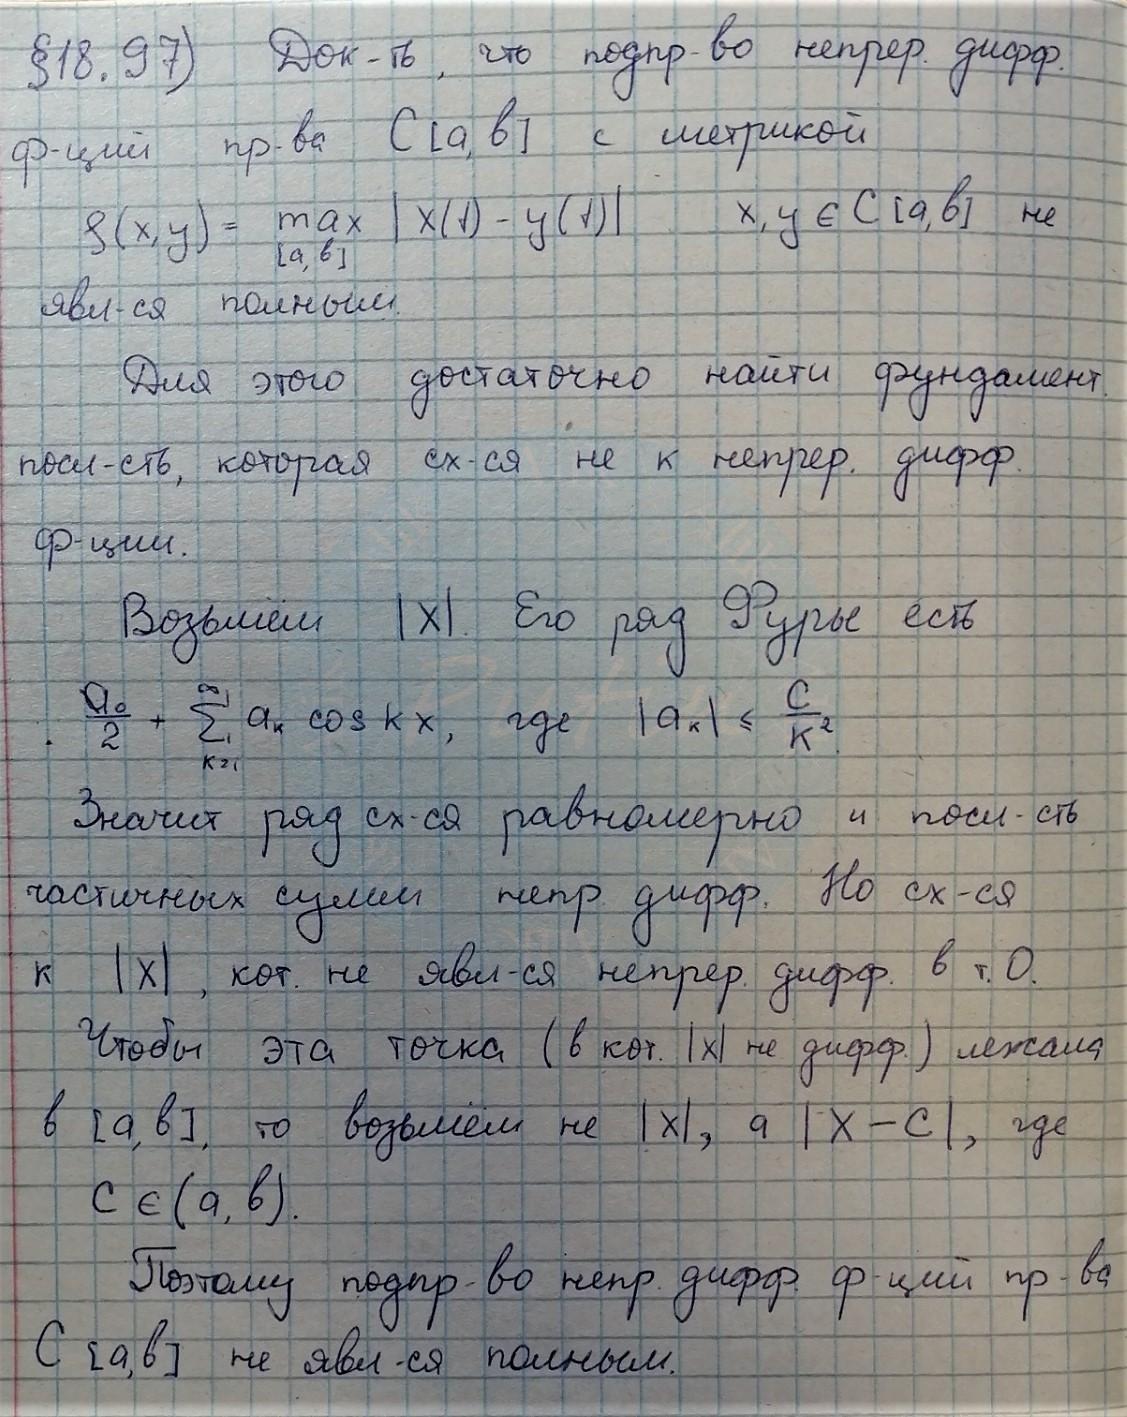 §18.97) Док-ть, что подпр-во непрер. дифф.
ф-ций пр-ва C[a,b] с метрикой
ρ(x,y) = max |x(t) - y(t)| x,y ∈ C[a,b] не
[a,b]
явл-ся полным.
Для этого достаточно найти фундамент.
посл-сть, которая сх-ся не к непрер. дифф.
ф-ции.
Возьмём |x|. Его ряд Фурье есть
a₀/2 + ∑_{k=1}^{∞} aₖ cos kx, где |aₖ| ≤ C/k².
Значит ряд сх-ся равномерно и посл-сть
частичных сумм непр. дифф. Но сх-ся
к |x|, кот. не явл-ся непрер. дифф. в т.О.
Чтобы эта точка (в кот. |x| не дифф.) лежала
в [a,b], то возьмём не |x|, а |x-c|, где
c ∈ (a,b).
Поэтому подпр-во непр. дифф. ф-ций пр-ва
C[a,b] не явл-ся полным.